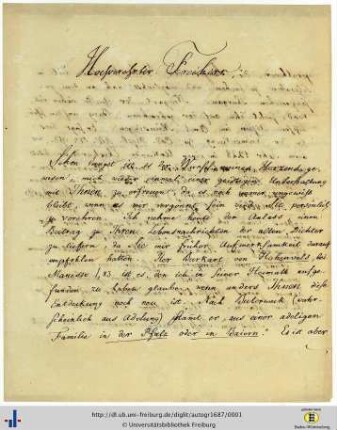 Hochverehrter Freiherr,
Schon längst ist es
mich wieder einmal einer geistigen Unterhaltung
mit Ihnen zu erfreuen. Da es noch immer ungewiß
bleibt, wann es mir vergönnt sein wird, Sie persönlich
zu verehren. Ich nehme heute den Anlass einen
Beitrag zu Ihren Lebensnachrichten der alten Dichter
zu liefern, da Sie mir früher Aufmerksamkeit darauf
empfohlen hatten. Herr Burkart von Hohenvels, bei
Manesse 1,83. ist es, den ich in seiner Heimath aufge-
funden zu haben glaube, wenn anders Ihnen diese
Entdeckung noch neu ist. Nach Buterweck (wahr-
scheinlich aus Adelung) stamt er, aus einer adeligen
Familie in der Pfalz oder in Baiern. Es ist aber
http://dl.ub.uni-freiburg.de/diglit/autogr1687/0001
© Universitätsbibliothek Freiburg